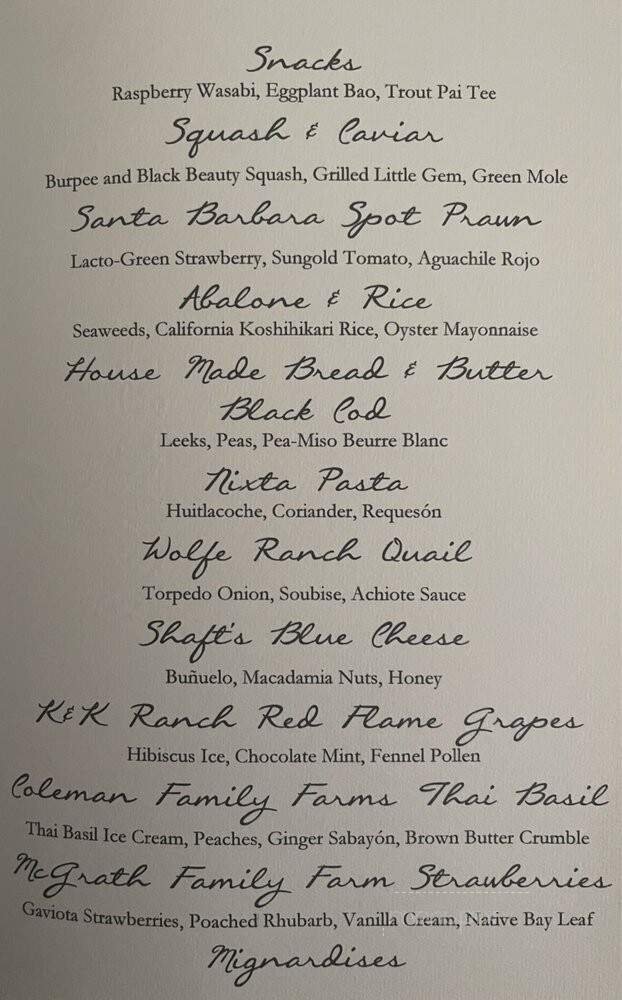 Snacks
Raspberry Wasabi, Eggplant Bao, Trout Pai Tee
Squash & Caviar
Burpee and Black Beauty Squash, Grilled Little Gem, Green Mole
Santa Barbara Spot Prawn
Lacto-Green Strawberry, Sungold Tomato, Aguachile Rojo
Abalone & Rice
Seaweeds, California Koshihikari Rice, Oyster Mayonnaise
House Made Bread & Butter
Black Cod
Leeks, Peas, Pea-Miso Beurre Blanc
Nixta Pasta
Huitlacoche, Coriander, Requesón
Wolfe Ranch Quail
Torpedo Onion, Soubise, Achiote Sauce
Shaft's Blue Cheese
Buñuelo, Macadamia Nuts, Honey
K&K Ranch Red Flame Grapes
Hibiscus Ice, Chocolate Mint, Fennel Pollen
Coleman Family Farms Thai Basil
Thai Basil Ice Cream, Peaches, Ginger Sabayón, Brown Butter Crumble
McGrath Family Farm Strawberries
Gaviota Strawberries, Poached Rhubarb, Vanilla Cream, Native Bay Leaf
Mignardises